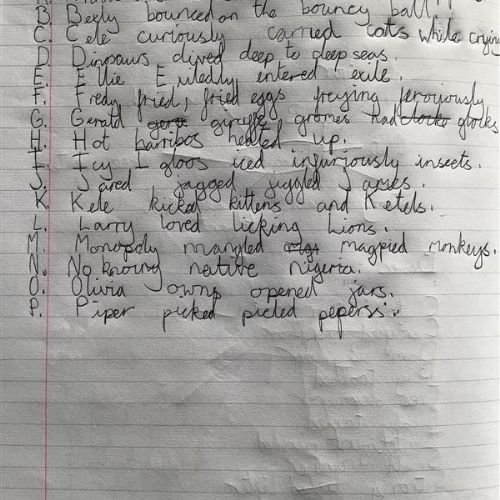 B. Bexly bounced on the bouncy ball.
C. Cele curiously carried cats while crying
D. Dinosaurs dived deep to deep seas.
E. Ellie Exiledly entered exile.
F. Fredy fried, fried eggs freying feroyiously
G. Gerald giraffe gnomes had clocks glocks
H. Hot harribos heated up.
I. Icy Igloos iced injuriously insects.
J. Jared jagged juggled James.
K. Kele kicked kittens and Ketels.
L. Larry loved licking Lions.
M. Monopoly mangled magpied monkeys.
N. No knowing native nigeria.
O. Olivia owns opened jars.
P. Piper picked picled peperss.